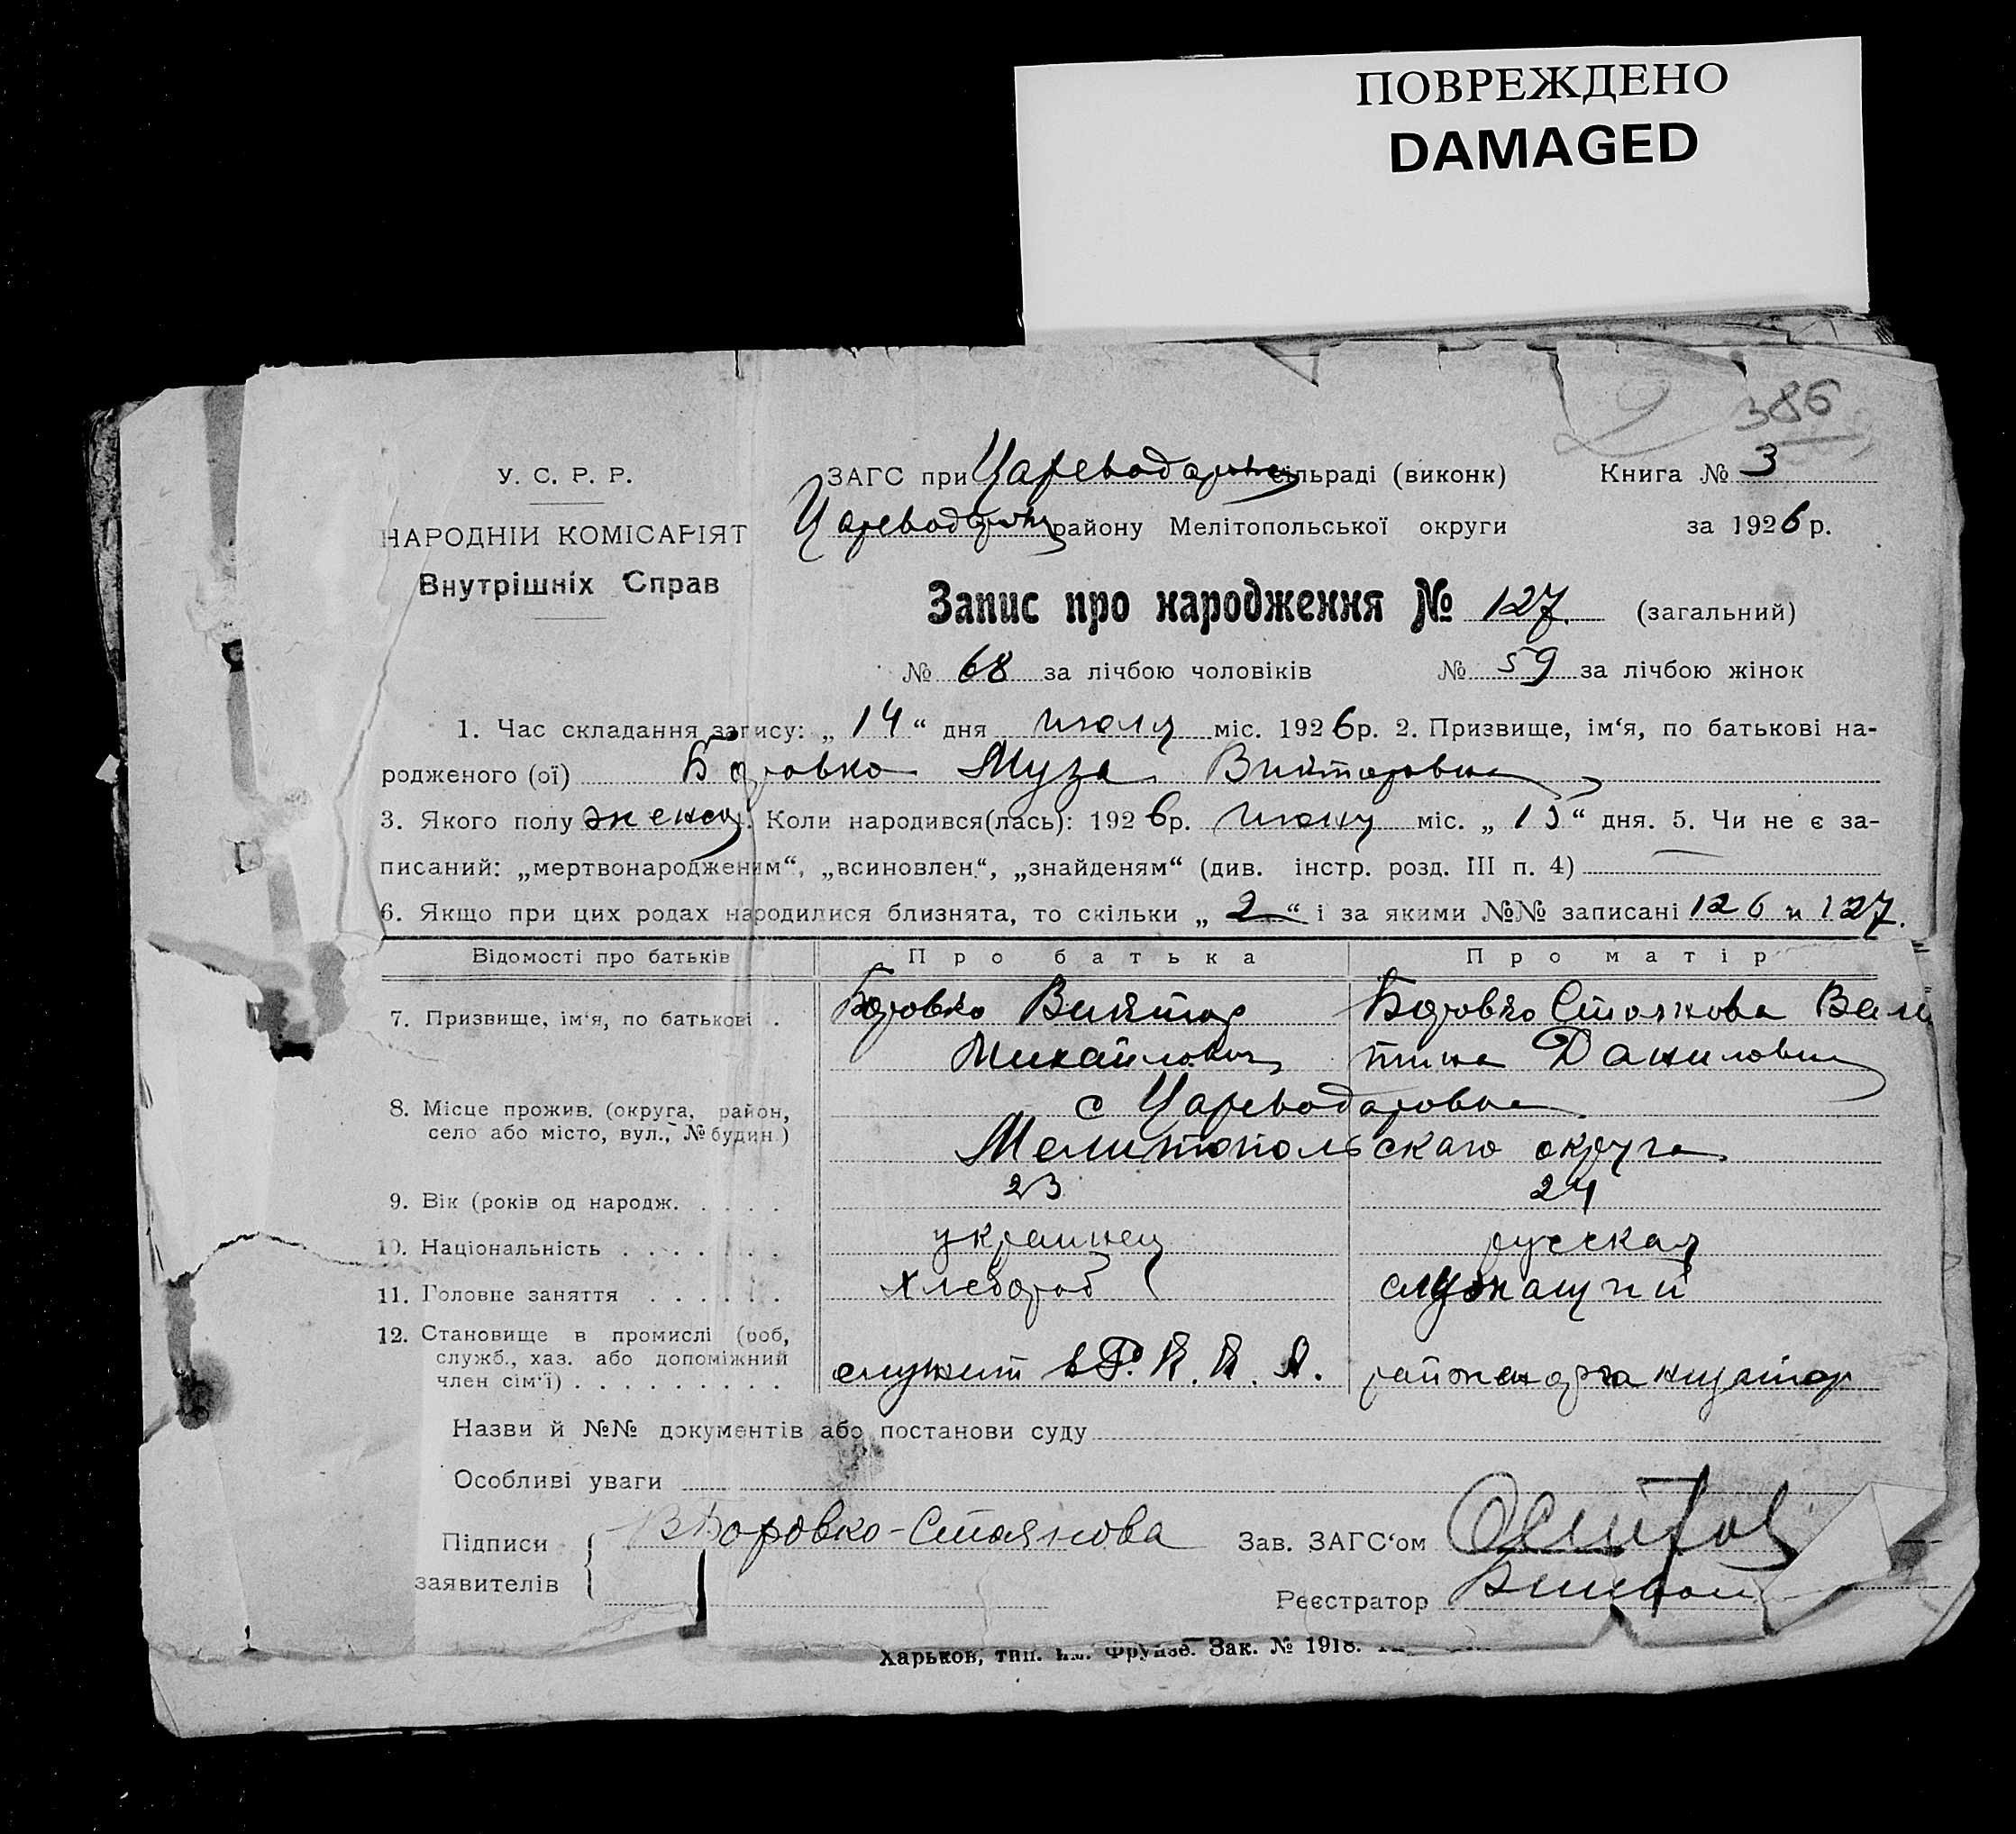 ПОВРЕЖДЕНО
DAMAGED
386
У. С. Р. Р.
НАРОДНІЙ КОМІСАРІЯТ
Внутрішніх Справ
ЗАГС при Цареводаровск сільраді (виконк) Книга № 3
Цареводаровск району Мелітопольської округи за 1926 р.
Запис про народження № 127. (загальний)
№ 68 за лічбою чоловіків № 59 за лічбою жінок
1. Час складання запису: „ 14 “ дня июля міс. 1926 р. 2. Призвище, ім‘я, по батькові на-
родженого (ої) Боровко Муза Викторовна
3. Якого полу женск. Коли народився(лась): 1926 р. міс. „ 15 “ дня. 5. Чи не є за-
писаний: „мертвонародженим“, „всиновлен.“, „знайденям“ (див. інстр. розд. III п. 4)
6. Якщо при цих родах народилися близнята, то скільки „ 2 “ і за якими №№ записані 126 и 127.
Відомості про батьків Про батька Про матір
7. Призвище, ім‘я, по батькові . Боровко Виктор Боровко Стоянова Вален
Михайлович тина Даниловна
8. Місце прожив. (округа, район,
село або місто, вул., № будин.)
с Цареводаровка
Мелитопольскаго округа
9. Вік (років од народж. . . . . 23 24
10. Національність . . . . . . . украинец русская
11. Головне заняття . . . . . . хлебороб служащий
12. Становище в промислі (роб,
служб., хаз. або допоміжний
член сім‘ї) . . . . . . . . . служит в Р. К. К. А. райженорганизатор
Назви й №№ документів або постанови суду
Особливі уваги
Підписи
заявителів
В Боровко-Стоянова
Зав. ЗАГС‘ом
Реєстратор
Харьков, тип. им. Фрунзе. Зак. № 1918.